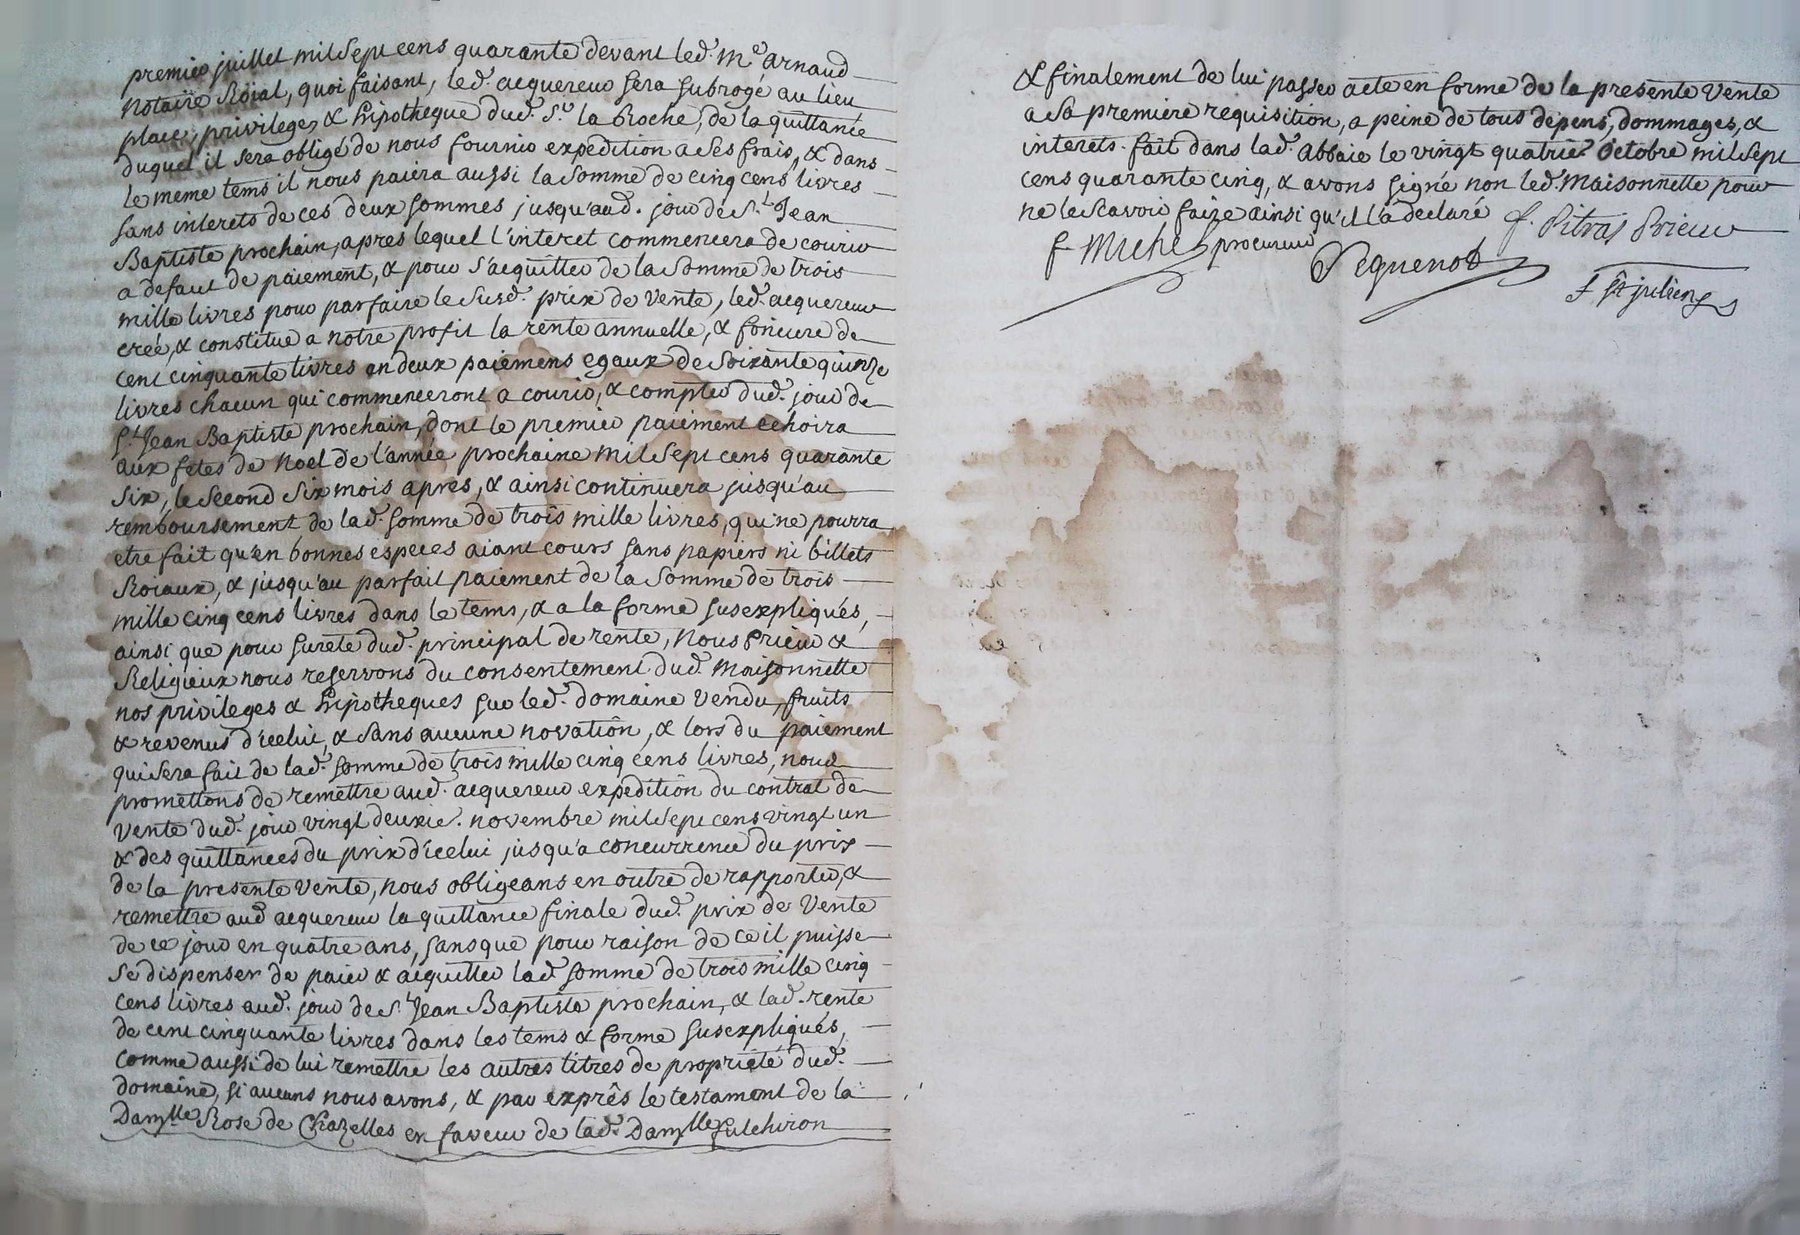 premier juillet mil sept cens quarante devant led. Me. arnaud
Notaire Roïal, quoi faisant, led. acquereur sera subrogé au lieu
place, privileges, & hipotheque dud. Sr. la Roche, de la quittance
duquel il sera obligé de nous fournir expedition a ses frais, & dans
le meme tems il nous païera aussi la somme de cinq cens livres
sans interets de ces deux sommes jusqu'aud. jour de St. Jean
Baptiste prochain, apres lequel l'interet commencera de courir
a defaut de païement, & pour s'acquitter de la somme de trois
mille livres pour parfaire le susd. prix de vente, led. acquereur
créé, & constitue a notre profit la rente annuelle, & fonciere de
cent cinquante livres en deux païemens egaux de soixante quinze
livres chacun qui commenceront a courir, & compter dud. jour de
St. Jean Baptiste prochain, dont le premier païement echoira
aux fetes de Noel de l'année prochaine mil sept cens quarante
six, le second six mois apres, & ainsi continuera jusqu'au
remboursement de lad. somme de trois mille livres, qui ne pourra
etre fait qu'en bonnes especes aïant cours sans papiers ni billets
Roïaux, & jusqu'au parfait païement de la somme de trois
mille cinq cens livres dans le tems, & a la forme susexpliqués,
ainsi que pour sureté dud. principal de rente, Nous Prieur &
Religieux nous reservons du consentement dud. Maisonnette
nos privileges & hipotheques sur led. domaine vendu, fruits
& revenus d'icelui, & sans aucune novation, & lors du païement
qui sera fait de lad. somme de trois mille cinq cens livres, nous
promettons de remettre aud. acquereur expedition du contrat de
vente dud. jour vingt deuxie. novembre mil sept cens vingt un
& des quittances du prix d'icelui jusqu'a concurrence du prix
de la presente vente, nous obligeans en outre de rapporter, &
remettre aud acquereur la quittance finale dud. prix de vente
de ce jour en quatre ans, sans que pour raison de ce il puisse
se dispenser de païer & acquitter lad. somme de trois mille cinq
cens livres aud. jour de St. Jean Baptiste prochain, & lad. rente
de cent cinquante livres dans les tems & forme susexpliqués,
comme aussi de lui remettre les autres titres de propriété dud.
domaine, si aucuns nous avons, & par exprês le testament de la
Damlle Rose de Chazelles en faveur de lad. Damlle fulchiron
& finalement de lui passer acte en forme de la presente vente
a sa premiere requisition, a peine de tous depens, dommages, &
interets. fait dans lad. abbaïe le vingt quatrie. octobre mil sept
cens quarante cinq, & avons signé non led. Maisonnette pour
ne le scavoir faire ainsi qu'il l'a declaré f. Pitras Prieur
f Michel procureur Peguenot
f St julien